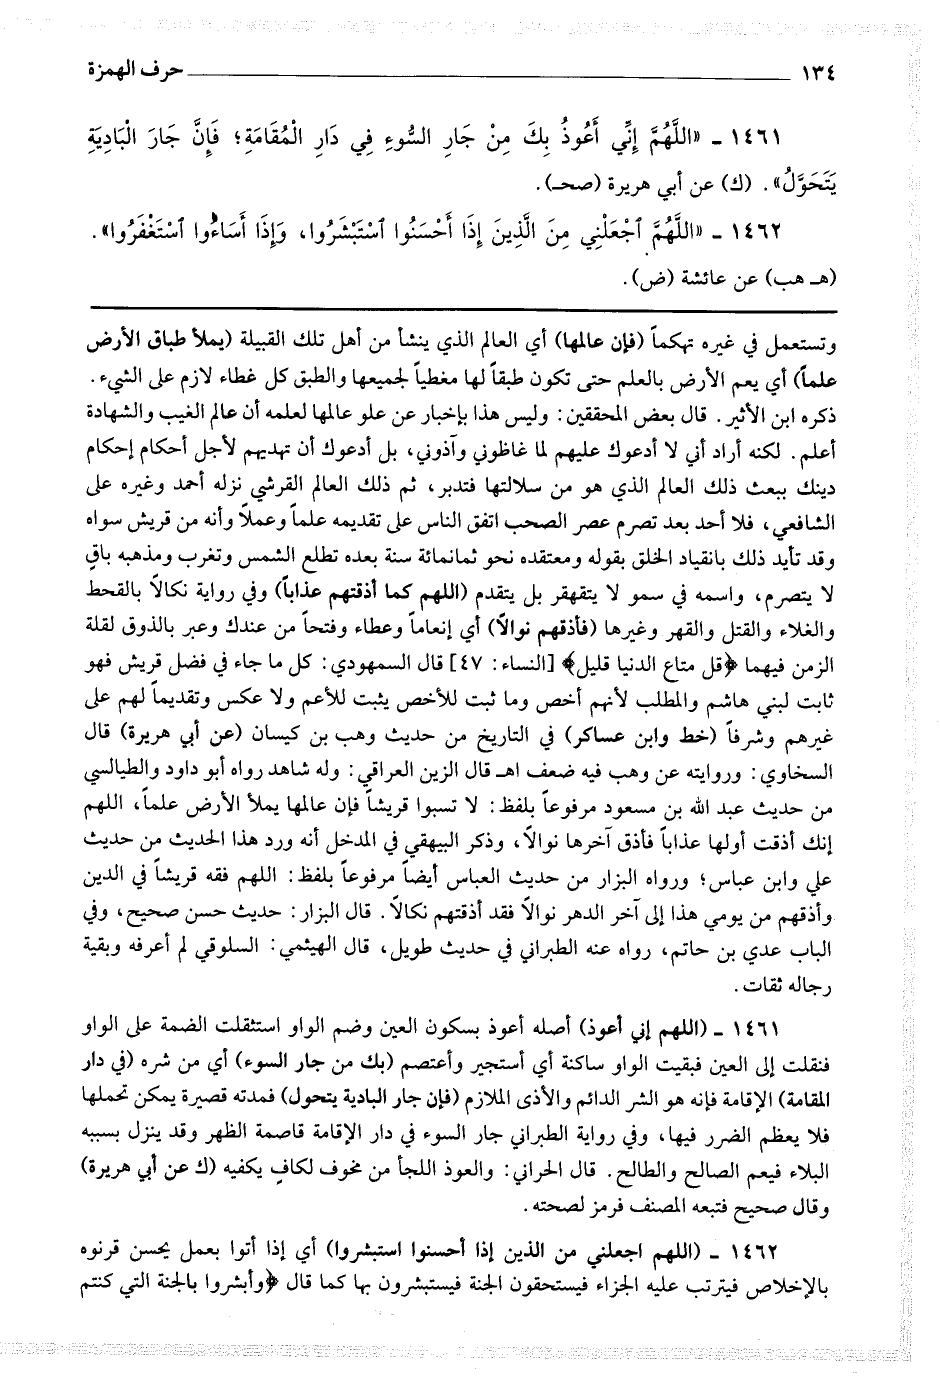 ١٣٤ ــــــــــــــــــــ حرف الهمزة
١٤٦١ ـ «اللَّهُمَّ إِنِّي أَعُوذُ بِكَ مِنْ جَارِ السُّوءِ فِي دَارِ الْمُقَامَةِ؛ فَإِنَّ جَارَ الْبَادِيَةِ
يَتَحَوَّلُ». (ك) عن أبي هريرة (صحـ).
١٤٦٢ ـ «اللَّهُمَّ ٱجْعَلْنِي مِنَ الَّذِينَ إِذَا أَحْسَنُوا ٱسْتَبْشَرُوا، وَإِذَا أَسَاءُوا ٱسْتَغْفَرُوا».
(هـ هب) عن عائشة (ض).
وتستعمل في غيره تهكماً (فإن عالمها) أي العالم الذي ينشأ من أهل تلك القبيلة (يملأ طباق الأرض
علماً) أي يعم الأرض بالعلم حتى تكون طبقاً لها مغطياً لجميعها والطبق كل غطاء لازم على الشيء.
ذكره ابن الأثير. قال بعض المحققين: وليس هذا بإخبار عن علو عالمها لعلمه أن عالم الغيب والشهادة
أعلم. لكنه أراد أني لا أدعوك عليهم لما غاظوني وآذوني، بل أدعوك أن تهديهم لأجل أحكام إحكام
دينك ببعث ذلك العالم الذي هو من سلالتها فتدبر، ثم ذلك العالم القرشي نزله أحمد وغيره على
الشافعي، فلا أحد بعد تصرم عصر الصحب اتفق الناس على تقديمه علماً وعملاً وأنه من قريش سواه
وقد تأيد ذلك بانقياد الخلق بقوله ومعتقده نحو ثمانمائة سنة بعده تطلع الشمس وتغرب ومذهبه باقٍ
لا يتصرم، واسمه في سمو لا يتقهقر بل يتقدم (اللهم كما أذقتهم عذاباً) وفي رواية نكالاً بالقحط
والغلاء والقتل والقهر وغيرها (فأذقهم نوالاً) أي إنعاماً وعطاء وفتحاً من عندك وعبر بالذوق لقلة
الزمن فيهما ﴿قل متاع الدنيا قليل﴾ [النساء: ٤٧] قال السمهودي: كل ما جاء في فضل قريش فهو
ثابت لبني هاشم والمطلب لأنهم أخص وما ثبت للأخص يثبت للأعم ولا عكس وتقديماً لهم على
غيرهم وشرفاً (خط وابن عساكر) في التاريخ من حديث وهب بن كيسان (عن أبي هريرة) قال
السخاوي: وروايته عن وهب فيه ضعف اهـ قال الزين العراقي: وله شاهد رواه أبو داود والطيالسي
من حديث عبد الله بن مسعود مرفوعاً بلفظ: لا تسبوا قريشاً فإن عالمها يملأ الأرض علماً، اللهم
إنك أذقت أولها عذاباً فأذق آخرها نوالاً، وذكر البيهقي في المدخل أنه ورد هذا الحديث من حديث
علي وابن عباس؛ ورواه البزار من حديث العباس أيضاً مرفوعاً بلفظ: اللهم فقه قريشاً في الدين
وأذقهم من يومي هذا إلى آخر الدهر نوالاً فقد أذقتهم نكالاً. قال البزار: حديث حسن صحيح، وفي
الباب عدي بن حاتم، رواه عنه الطبراني في حديث طويل، قال الهيثمي: السلوقي لم أعرفه وبقية
رجاله ثقات.
١٤٦١ ـ (اللهم إني أعوذ) أصله أعوذ بسكون العين وضم الواو استثقلت الضمة على الواو
فنقلت إلى العين فبقيت الواو ساكنة أي أستجير وأعتصم (بك من جار السوء) أي من شره (في دار
المقامة) الإقامة فإنه هو الشر الدائم والأذى الملازم (فإن جار البادية يتحول) فمدته قصيرة يمكن تحملها
فلا يعظم الضرر فيها، وفي رواية الطبراني جار السوء في دار الإقامة قاصمة الظهر وقد ينزل بسببه
البلاء فيعم الصالح والطالح. قال الحراني: والعوذ اللجأ من مخوف لكافٍ يكفيه (ك عن أبي هريرة)
وقال صحيح فتبعه المصنف فرمز لصحته.
١٤٦٢ ـ (اللهم اجعلني من الذين إذا أحسنوا استبشروا) أي إذا أتوا بعمل يحسن قرنوه
بالإخلاص فيترتب عليه الجزاء فيستحقون الجنة فيستبشرون بها كما قال ﴿وأبشروا بالجنة التي كنتم